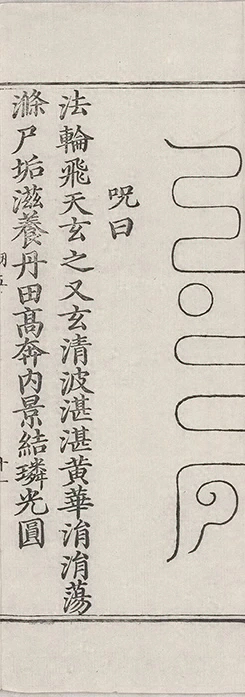 呪曰
法輪飛天玄之又玄清波湛湛黃華㳙㳙蕩
滌尸垢滋養丹田高奔內景結璘光圓